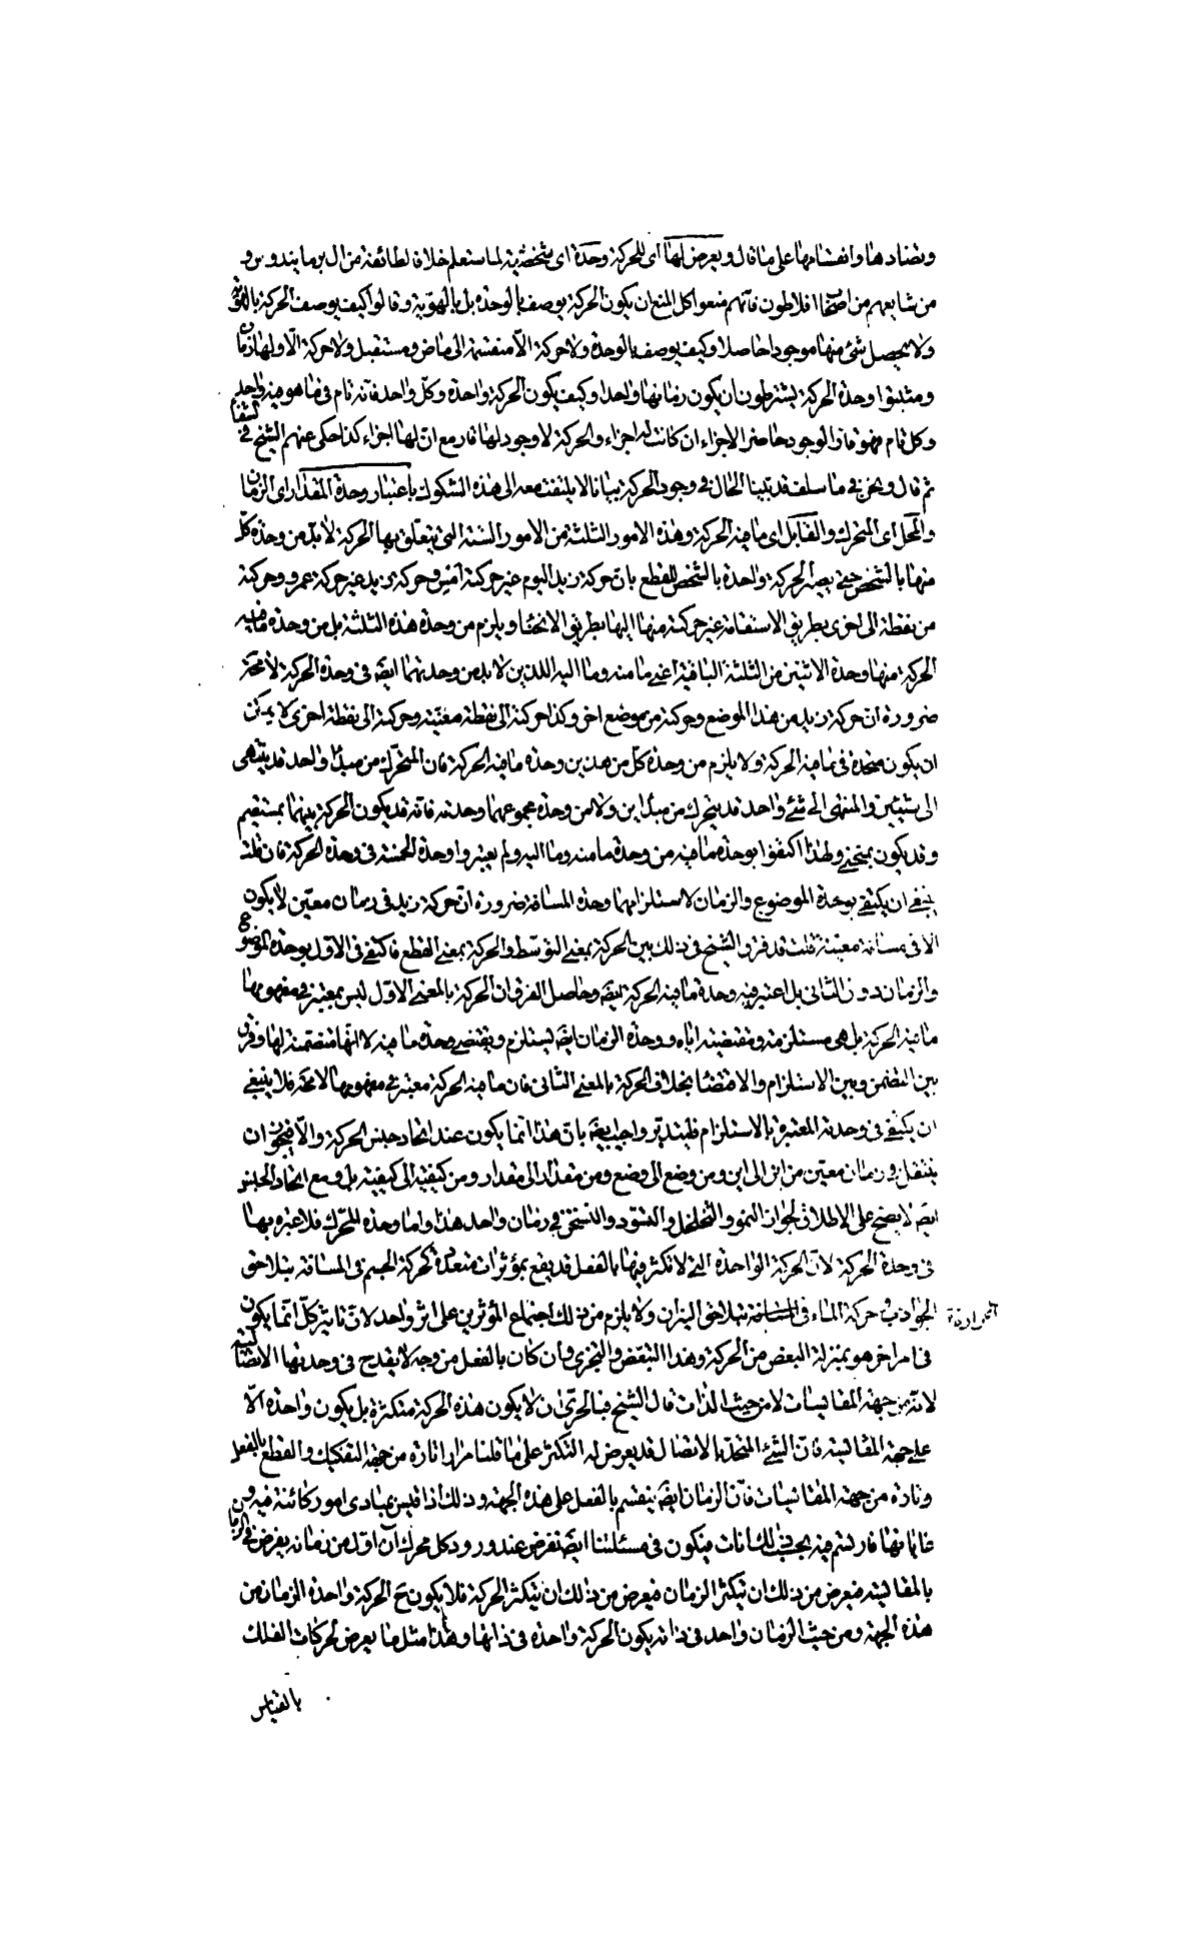 وتضادها وانقسامها على ما قال ويعرض لها اى للحركة وحدة اى شخصية لما ستعلم خلافا لطائفة من ال برمانيدوس و
من شايعهم من اصحاب افلاطون فانهم منعوا كل المنع ان يكون الحركة يوصف بالوحدة بل بالهوية وقالوا كيف يوصف الحركة بالهوية
ولا يحصل شئ منها موجودا حاصلا وكيف يوصف بالوحدة ولا حركة الّا منقسمة الى ماض ومستقبل ولا حركة الّا ولها زمان
ومثبتوا وحدة الحركة يشترطون ان يكون زمانها واحدا وكيف يكون الحركة واحدة وكل واحد فانه تام فى ما هو فيه واحد
وكل تام فهو قار الوجود حاضر الاجزاء ان كانت له اجزاء والحركة لا وجود لها قار مع ان لها اجزاء كذا حكى عنهم الشيخ فى الشفا
ثم قال ونحن فى ما سلف قد بينا الحال فى وجود الحركة بيانا لا يلتفت معه الى هذه الشكوك باعتبار وحدة المقدار اى الزمان
والمحل اى المتحرك والقابل اى ما فيه الحركة وهذه الامور الثلثة من الامور الستة التى يتعلق بها الحركة لا بد من وحدة كل
منها بالشخص حتى يصير الحركة واحدة بالشخص للقطع بان حركة زيد اليوم غير حركته امس وحركة زيد غير حركة عمرو وحركة
من نقطة الى اخرى بطريق الاستقامة غير حركته منها اليها بطريق الانحناء ويلزم من وحدة هذه الثلثة بل من وحدة ما فيه
الحركة منها وحدة الاثنين من الثلثة الباقية اعنى ما منه وما اليه اللذين لا بد من وحدتهما ايضا فى وحدة الحركة لا محة
ضرورة ان حركة زيد من هذا الموضع وحركته من موضع اخر وكذا حركته الى نقطة معينة وحركته الى نقطة اخرى لا يمكن
ان يكون متحدة فى ما فيه الحركة ولا يلزم من وحدة كل من هذين وحدة ما فيه الحركة فان المتحرك من مبدأ واحد قد ينتهى
الى شيئين والمنتهى الى شئ واحد قد يتحرك من مبدأين ولا من وحدة مجموعهما وحدته فانه قد يكون الحركة بينهما بمستقيم
وقد يكون بمنحنى ولهذا اكتفوا بوحدة ما فيه من وحدة ما منه وما اليه ولم يعتبروا وحدة الخمسة فى وحدة الحركة فان قلت
ينبغى ان يكتفى بوحدة الموضوع والزمان لاستلزامهما وحدة المسافة ضرورة ان حركة زيد فى زمان معين لا يكون
الا فى مسافة معينة قلت قد فرق الشيخ فى ذلك بين الحركة بمعنى التوسط والحركة بمعنى القطع فاكتفى فى الاول بوحدة الموضوع
والزمان دون الثانى بل اعتبر فيه وحدة ما فيه الحركة ايضا وحاصل الفرق ان الحركة بالمعنى الاول ليس بمعتبر فى مفهومها
ما فيه الحركة بل هى مستلزمة ومقتضية اياه ووحدة الزمان ايضا يستلزم ويقتضى وحدة ما فيه لا انها متضمنة لها وفرق
بين التضمن وبين الاستلزام والاقتضاء بخلاف الحركة بالمعنى الثانى فان ما فيه الحركة معتبر فى مفهومها لا محة فلا ينبغى
ان يكتفى فى وحدته المعتبرة بالاستلزام فليتدبر واجيب ايضا بان هذا انما يكون عند اتحاد جنس الحركة والّا فيجوز ان
ينتقل فى زمان معين من اين الى اين ومن وضع الى وضع ومن مقدار الى مقدار ومن كيفية الى كيفية بل ومع اتحاد الجنس
ايضا لا يصح على الاطلاق لجواز النمو والتخلخل والتسود والتسخن فى زمان واحد هذا واما وحدة المحرك فلا عبرة بها
فى وحدة الحركة لان الحركة الواحدة التى لا تكثر فيها بالفعل قد يقع بمؤثرات متعددة كحركة الجسم فى المسافة بتلاحق
الجواذب وحركة الماء فى الحرارة بتلاحق النيران ولا يلزم من ذلك اجتماع المؤثرين على اثر واحد لان تاثير كل انما يكون
فى امر اخر هو بمنزلة البعض من الحركة وهذا التبعض والتجزى وان كان بالفعل من وجه لا يقدح فى وحدتها الاتصالية
لانه من جهة المقايسات لا من حيث الذات قال الشيخ فبالحرى ان لا يكون هذه الحركة متكثرة بل يكون واحدة الّا
على جهة المقايسة فان الشئ المتحد بالاتصال قد يعرض له التكثر على ما قلنا مرارا تارة من جهة التفكيك والقطع بالفعل
وتارة من جهة المقايسات فان الزمان ايضا ينقسم بالفعل على هذه الجهة وذلك اذا قيس بمبادى امور كائنة فيه وبين
غاياتها فارتسم فيه بحسب ذلك انات فيكون فى مسئلتنا ايضا نفرض عند ورود كل محرك آن اول من زمانه يفرض فى الزمان
بالمقايسة فيعرض من ذلك ان يتكثر الزمان فيعرض من ذلك ان يتكثر الحركة فلا يكون ح الحركة واحدة الزمان من
هذه الجهة ومن حيث الزمان واحد فى ذاته يكون الحركة واحدة فى ذاتها وهذا مثل ما يعرض لحركات الفلك
بالقياس